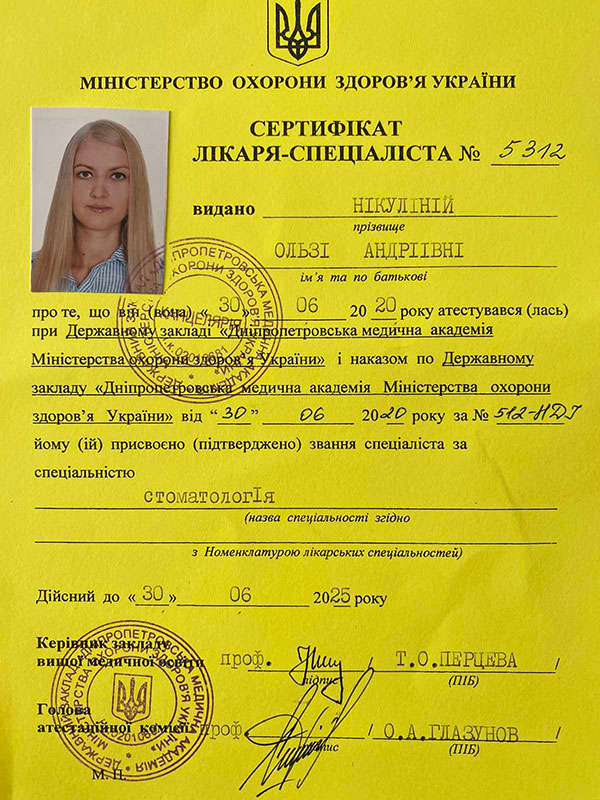 МІНІСТЕРСТВО ОХОРОНИ ЗДОРОВ'Я УКРАЇНИ
СЕРТИФІКАТ
ЛІКАРЯ-СПЕЦІАЛІСТА № 5312
видано НІКУЛІНІЙ
прізвище
ОЛЬЗІ АНДРІЇВНІ
ім'я та по батькові
про те, що він (вона) «30» 06 2020 року атестувався (лась)
при Державному закладі «Дніпропетровська медична академія
Міністерства охорони здоров'я України» і наказом по Державному
закладу «Дніпропетровська медична академія Міністерства охорони
здоров'я України» від “30” 06 2020 року за № 512-НДІ
йому (їй) присвоєно (підтверджено) звання спеціаліста за
спеціальністю
стоматологія
(назва спеціальності згідно
з Номенклатурою лікарських спеціальностей)
Дійсний до «30» 06 2025 року
Керівник закладу
вищої медичної освіти проф. / Т.О.ПЕРЦЕВА /
підпис (ПІБ)
Голова
атестаційної комісії проф. / О.А.ГЛАЗУНОВ /
підпис (ПІБ)
М. П.